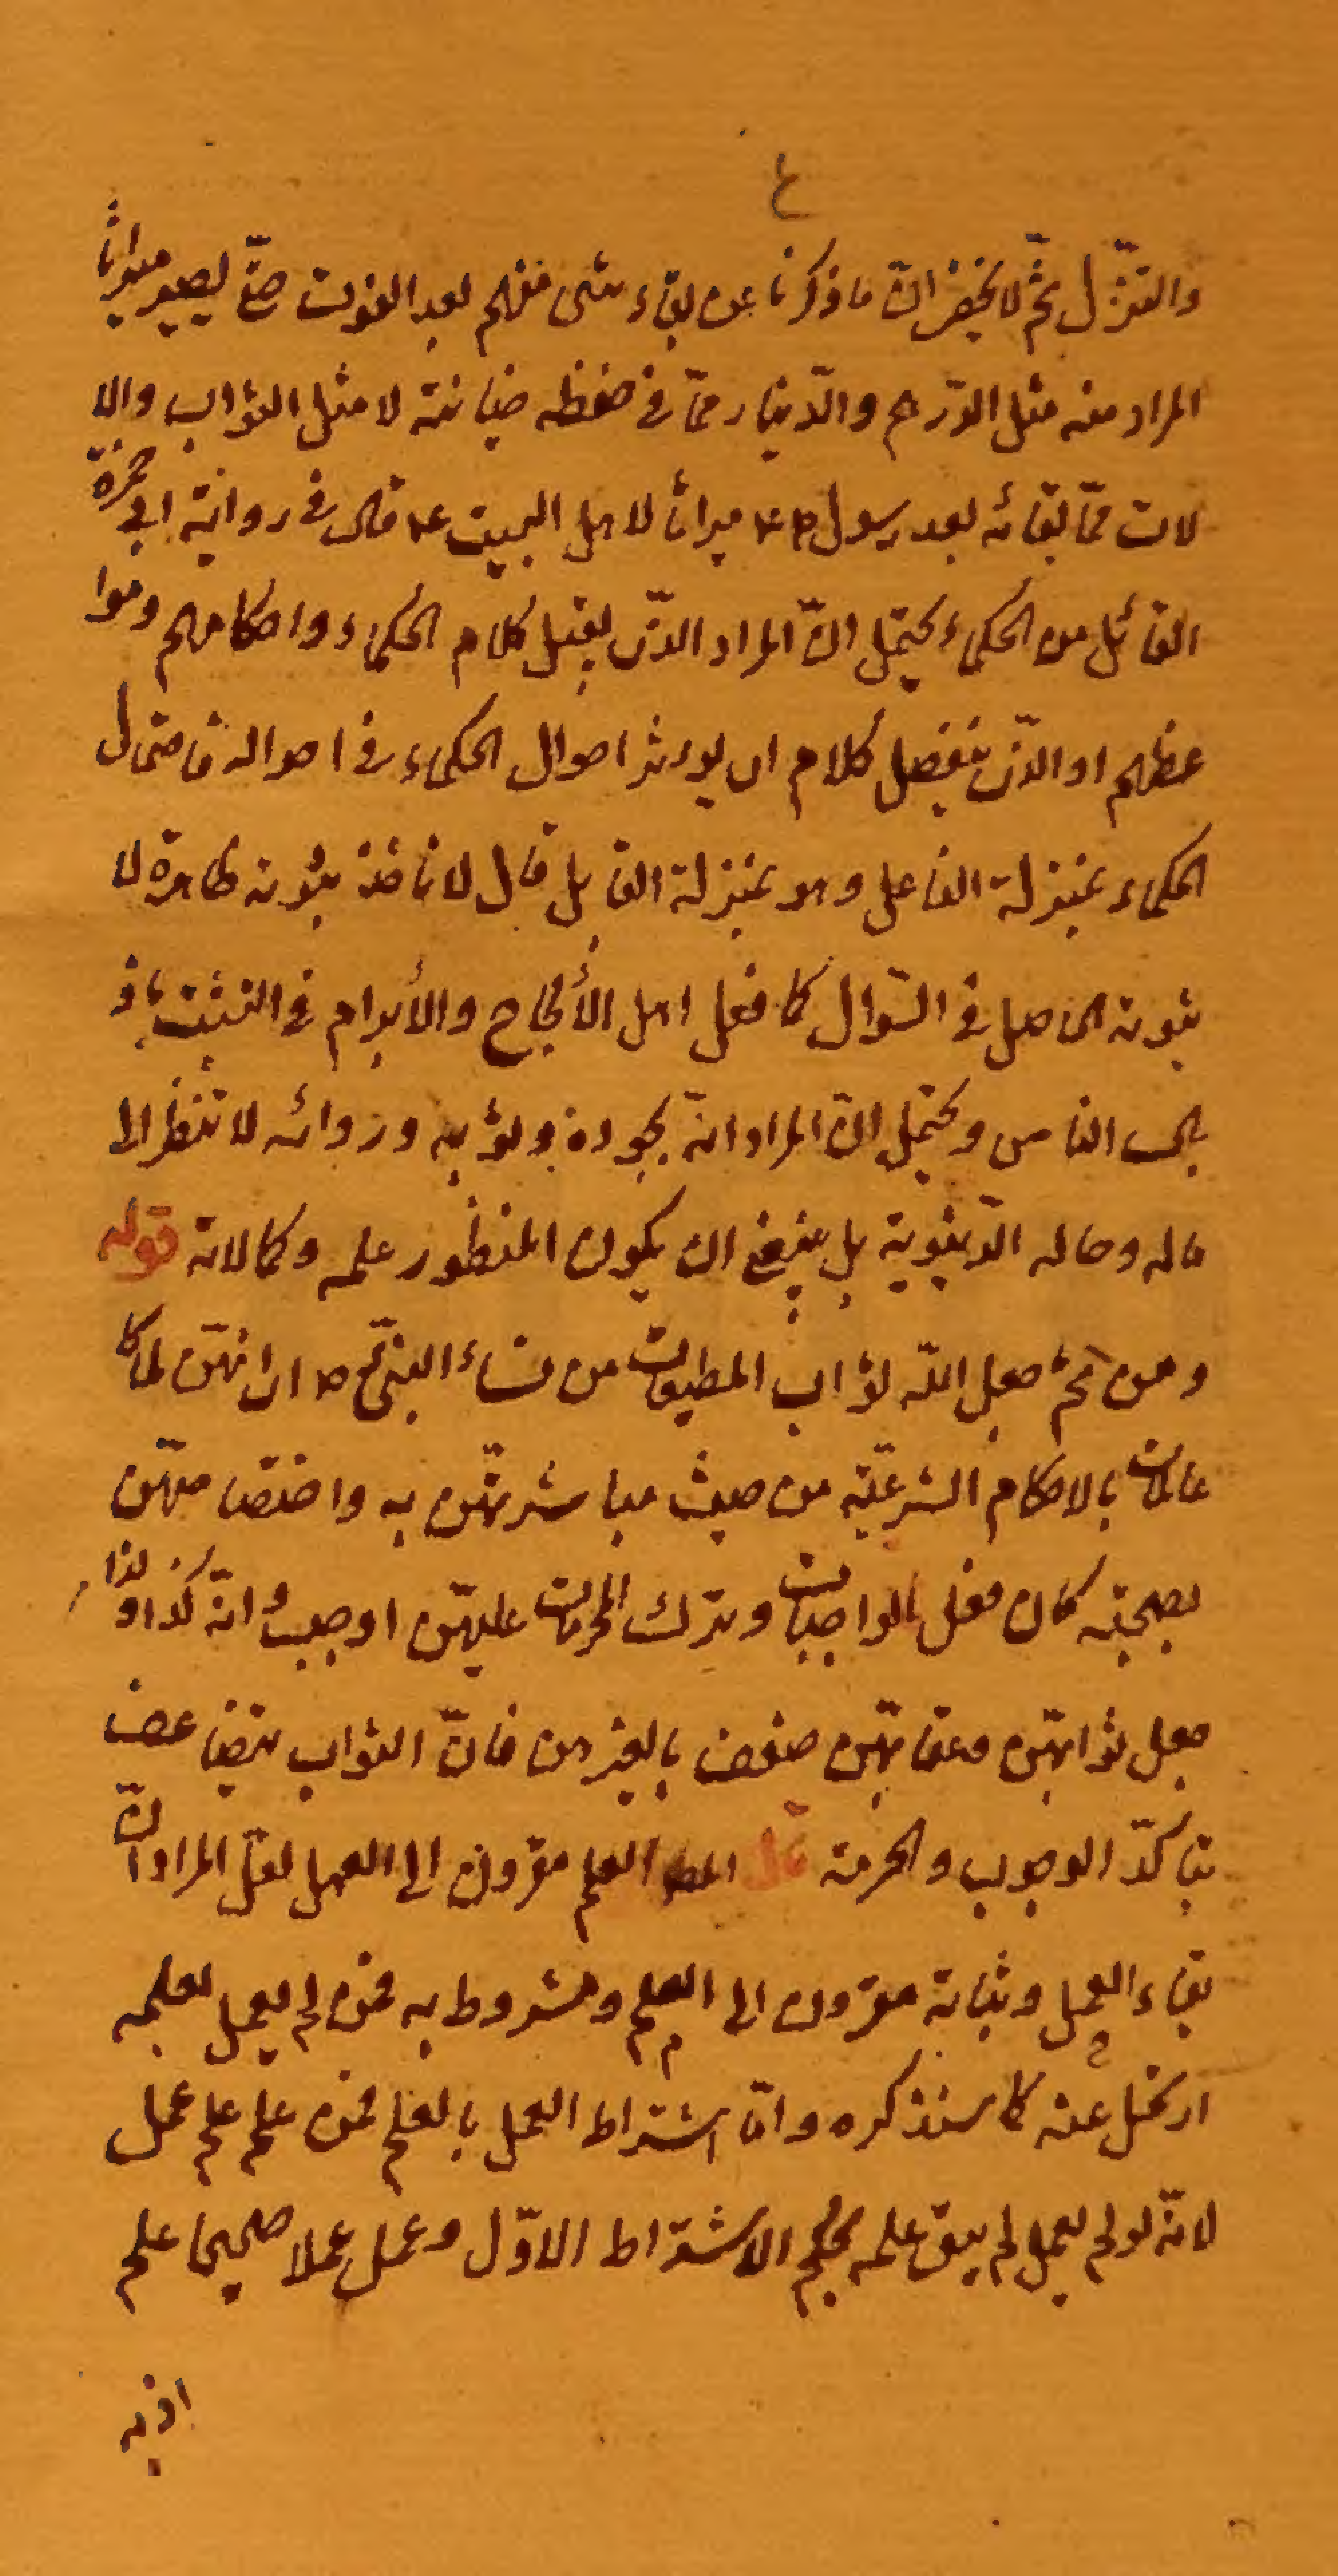 والتنزّل ثمّ لا يخفى انّ ما ذكرنا عن بقاء شئ منهم بعد الفوت حتّى يصير ميراثاً
المراد منه مثل الدّرهم والدّينار ممّا فى حفظه ضيانته لا مثل الثواب والا
لات ممّا بقائه بعد رسول ص٤ ميراثاً لاهل البيت ع قال فى رواية ابى حمزة
القائل من الحكماء يحتمل انّ المراد الذى يقبل كلام الحكماء واحكامهم وموا
عظهم او الذى ينفصل كلام اى يؤثر احوال الحكماء فى احواله فامثال
الحكماء بمنزلة الفاعل وهو بمنزلة القابل قال لا ناخذ بثوبه ظاهره لا
بثوبه الحاصل فى السّوال كما فعل اهل الألحاح والأبرام فى التشبّث با
لى الناس ويحتمل انّ المراد انّه بجودة وثوبه وردائه لا تنظر الى
ماله وحاله الدّنيوية بل ينبغى ان يكون المنظور علمه وكمالاته قوله
ومن ثمّ جعل الله ثواب المطيعات من نساء النبىّ ص اى انهنّ لما كا
عالمات بالاحكام الشرعيّة من حيث مباشرتهنّ به واختصا صهنّ
بصحبته كان فعل الواجبات وترك المحرمات عليهنّ اوجب وانه كذا ولذا
جعل ثوابهنّ وعقابهنّ ضعف بالغيرهن فانّ الثواب يتضاعف
بتاكدّ الوجوب والحرمة قال العلم مقرون الى العمل لعلّ المراد انّ
بقاء العمل وثباته مقرون الى العلم ومشروط به فمن لم يعمل بعلمه
ارتحل عنه كما سنذكره وامّا اشتراط العمل بالعلم فمن علم علم عمل
لانّه لو لم يعمل لم يبق علمه بحكم الاشتراط الاوّل وعمل عملا صحيحا علم
اذ به